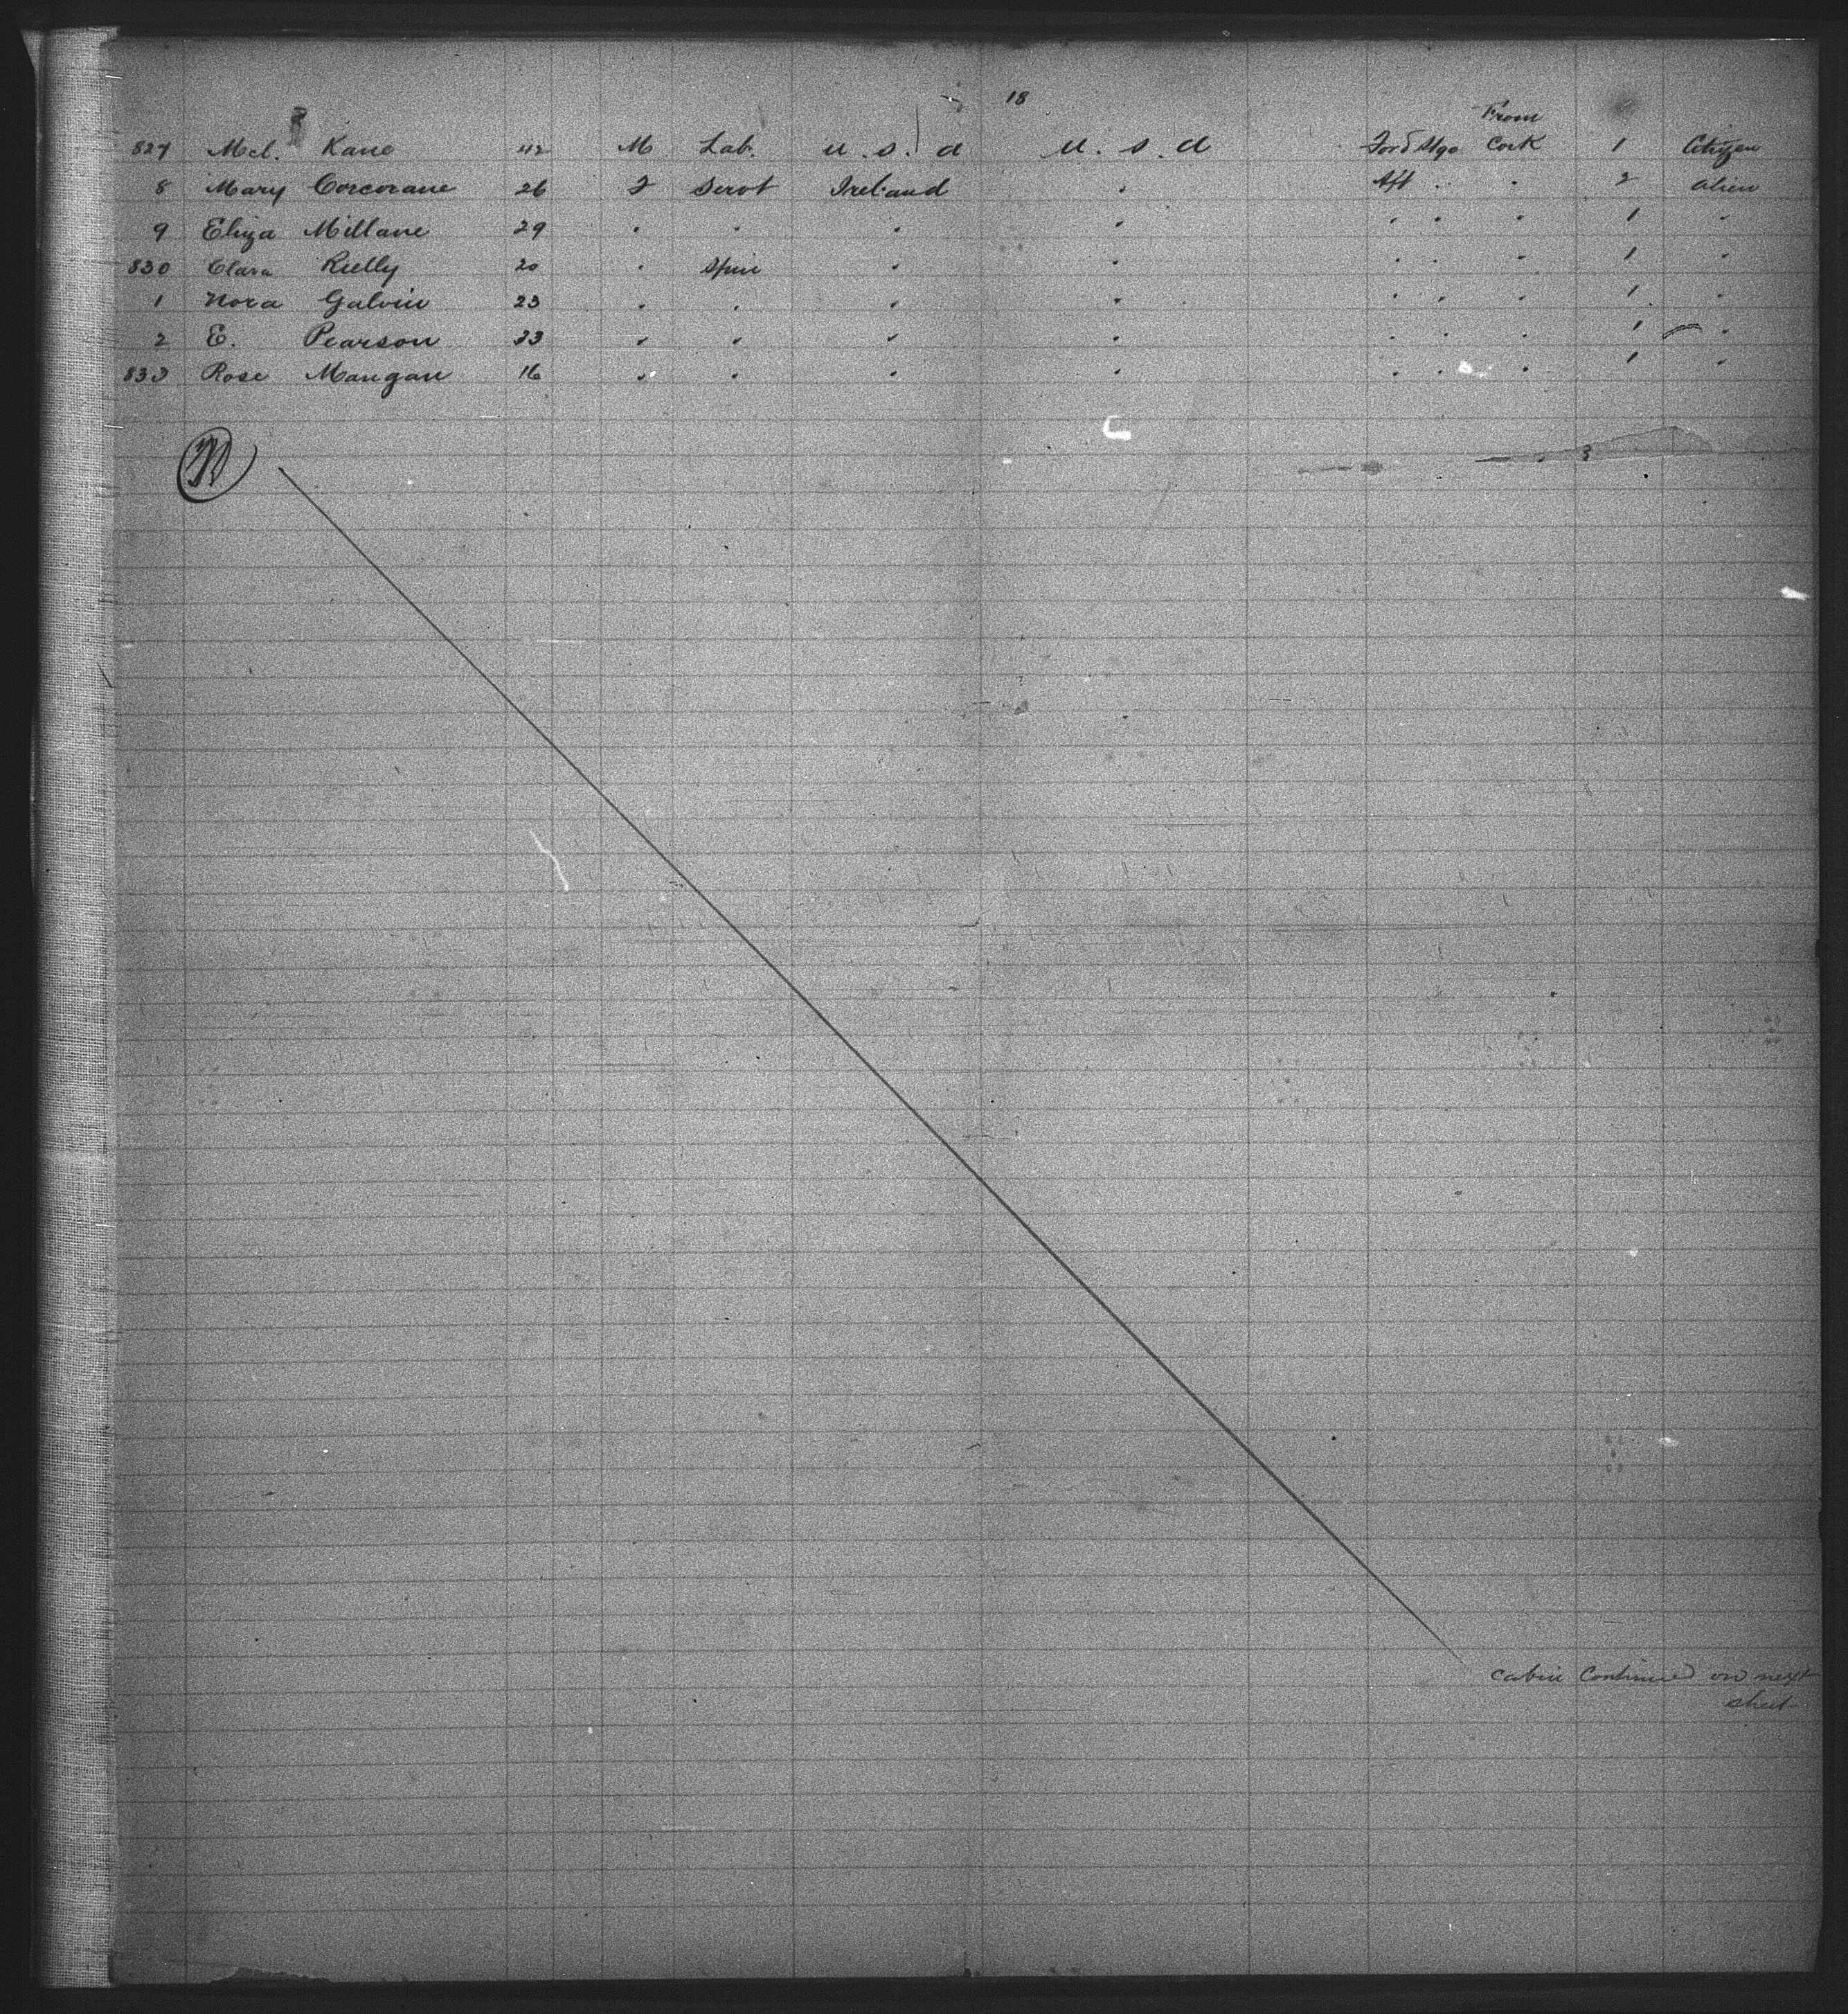 18
From
827 Mcl. Kane 42 M Lab. U.S.A U.S.A For'd Stge Cork 1 Citizen
8 Mary Corcorane 26 F Servt Ireland " Aft " " 2 Alien
9 Eliza Millane 29 " " " " " " " 1 "
830 Clara Rielly 20 " Spin " " " " " 1 "
1 Nora Galvin 23 " " " " " " " 1 "
2 E. Pearson 33 " " " " " " " 1 "
833 Rose Mangan 16 " " " " " " " 1 "
Cabin Continued on next
sheet